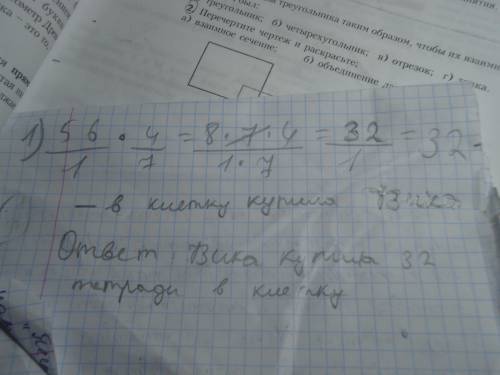 треугольника таким образом, чтобы их взаимн
треугольник; б) четырехугольник; в) отрезок; г)
2 Перечертите чертеж и раскрасьте;
а) взаимное сечение; б) объединение
1) 56/1 · 4/7 = 8·7·4/1·7 = 32/1 = 32 -
– в клетку купила Вика
Ответ: Вика купила 32
тетради в клетку